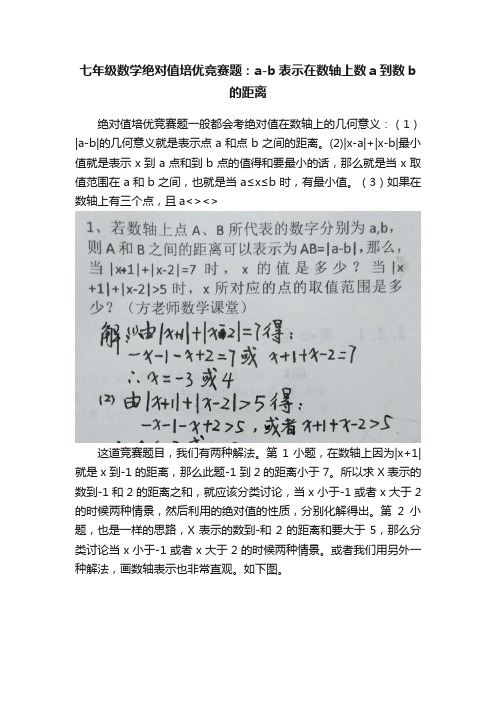 七年级数学绝对值培优竞赛题：a-b表示在数轴上数a到数b
的距离
绝对值培优竞赛题一般都会考绝对值在数轴上的几何意义：（1）
|a-b|的几何意义就是表示点a和点b之间的距离。(2)|x-a|+|x-b|最小
值就是表示x到a点和到b点的值得和要最小的话，那么就是当x取
值范围在a和b之间，也就是当a≤x≤b时，有最小值。（3）如果在
数轴上有三个点，且a<><>
1、若数轴上点A、B所代表的数字分别为a,b，
则A和B之间的距离可以表示为AB=|a-b|,那么，
当|x+1|+|x-2|=7时，x的值是多少？当|x
+1|+|x-2|>5时，x所对应的点的取值范围是多
少？（方老师数学课堂）
解:(1)由|x+1|+|x-2|=7得：
-x-1-x+2=7或 x+1+x-2=7
∴x=-3或4
(2)由|x+1|+|x-2|>5得：
-x-1-x+2>5，或者x+1+x-2>5
这道竞赛题目，我们有两种解法。第1小题，在数轴上因为|x+1|
就是x到-1的距离，那么此题-1到2的距离小于7。所以求X表示的
数到-1和2的距离之和，就应该分类讨论，当x小于-1或者x大于2
的时候两种情景，然后利用的绝对值的性质，分别化解得出。第2小
题，也是一样的思路，X表示的数到-和2的距离和要大于5，那么分
类讨论当x小于-1或者x大于2的时候两种情景。或者我们用另外一
种解法，画数轴表示也非常直观。如下图。